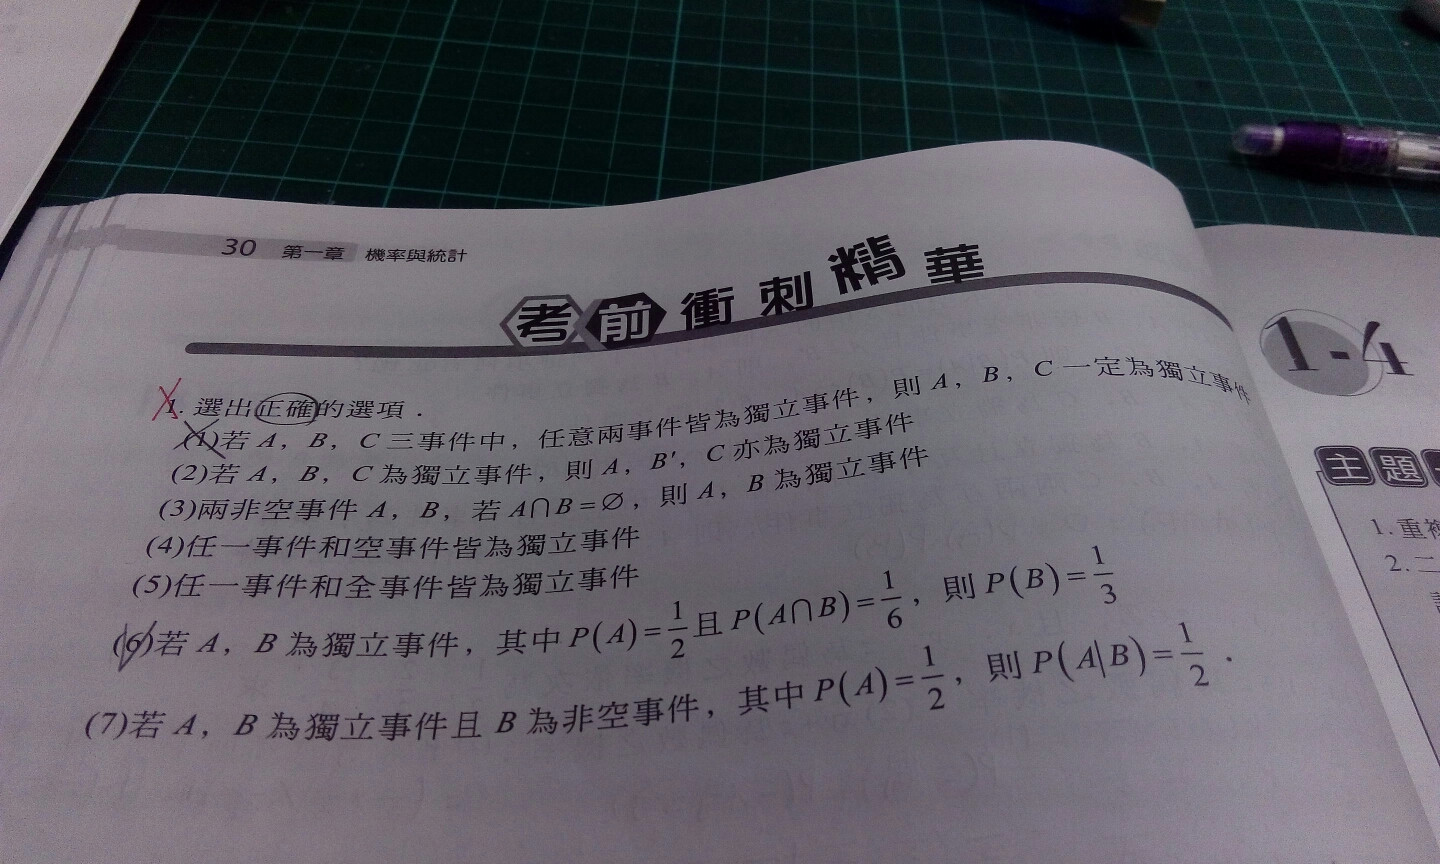 30 第一章 機率與統計
考前衝刺精華
1. 選出正確的選項．
(1)若 A，B，C 三事件中，任意兩事件皆為獨立事件，則 A，B，C 一定為獨立事件
(2)若 A，B，C 為獨立事件，則 A，B′，C 亦為獨立事件
(3)兩非空事件 A，B，若 A∩B=∅，則 A，B 為獨立事件
(4)任一事件和空事件皆為獨立事件
(5)任一事件和全事件皆為獨立事件
(6)若 A，B 為獨立事件，其中 P(A)=1/2 且 P(A∩B)=1/6，則 P(B)=1/3
(7)若 A，B 為獨立事件且 B 為非空事件，其中 P(A)=1/2，則 P(A|B)=1/2．
1-4
主題
1. 重
2. 二